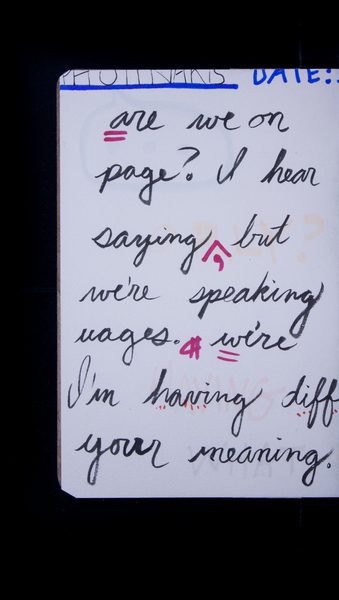 DATE:
are we on
page? I hear
saying, but
we're speaking
uages. we're
I'm having diff
your meaning.